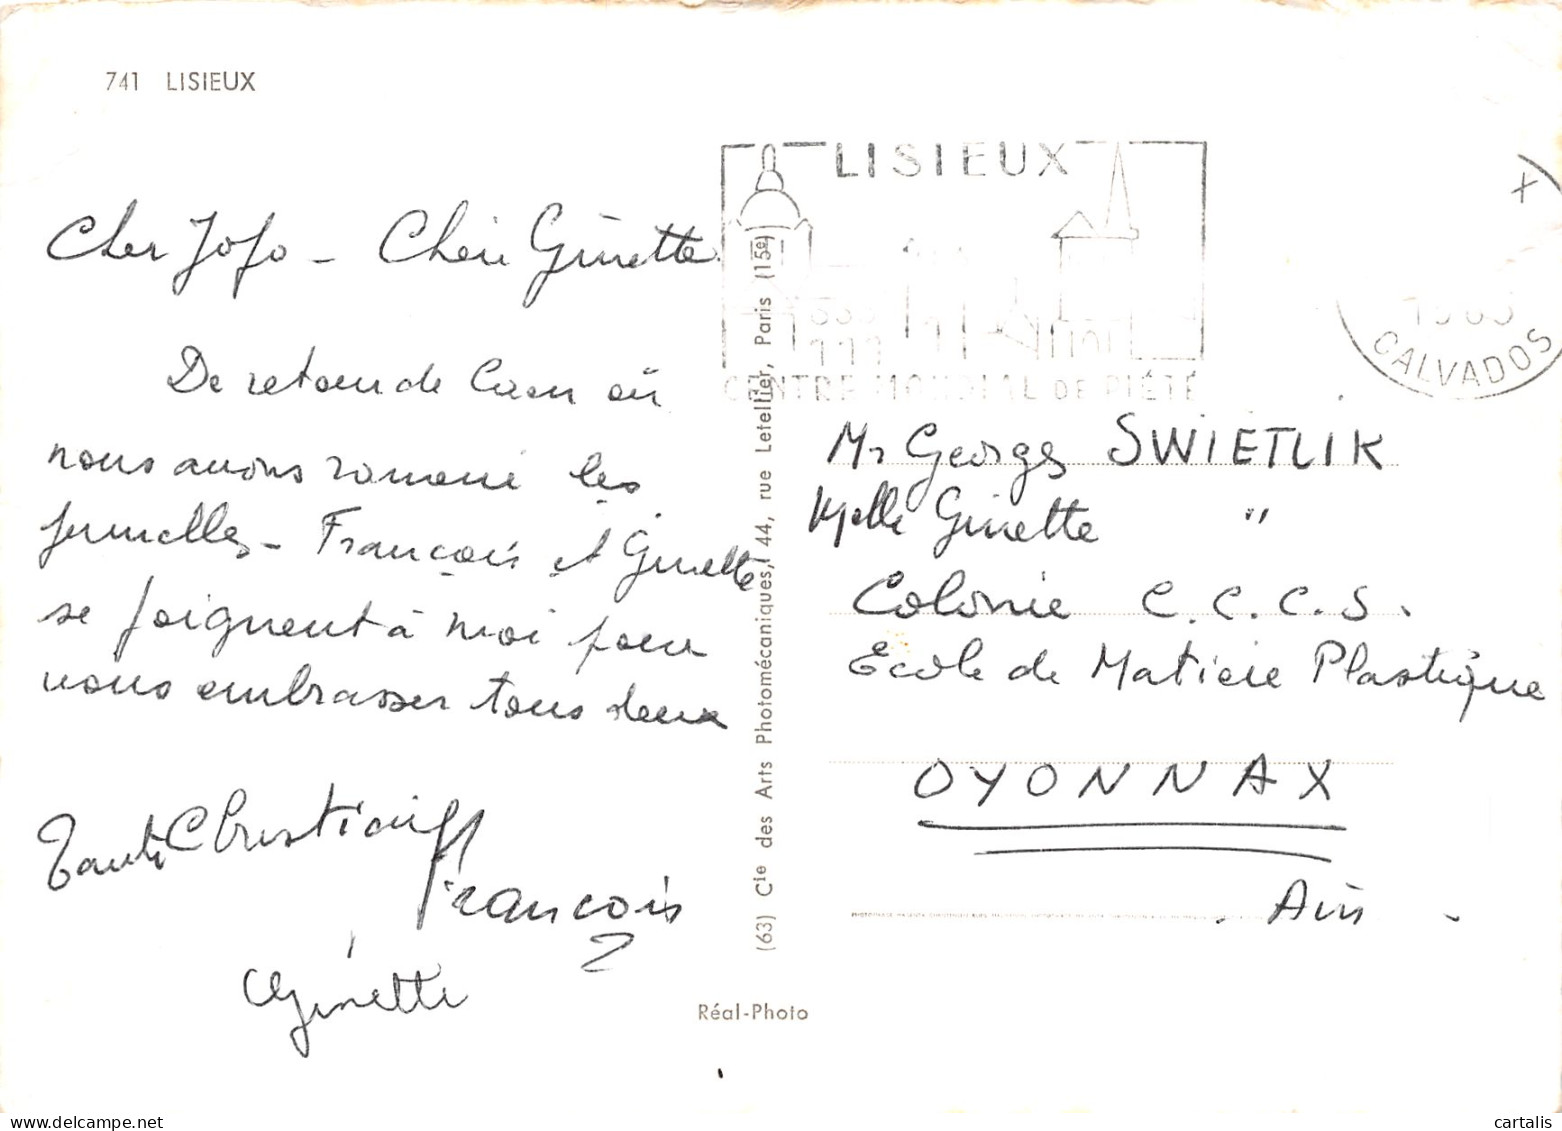 741 LISIEUX
LISIEUX
CENTRE MONDIAL DE PIÉTÉ
CALVADOS
Cher Jojo - Chère Ginette
De retour de Caen où
nous avons ramené les
jumelles - François et Ginette
se joignent à moi pour
vous embrasser tous deux
Tante Christiane
François
Ginette
(63) Cie des Arts Photomécaniques, 44, rue Letellier, Paris (15e)
Réal-Photo
Mr Georges SWIETLIK
Melle Ginette "
Colonie C.C.C.S.
Ecole de Matière Plastique
OYONNAX
Ain
cartalis
delcampe.net